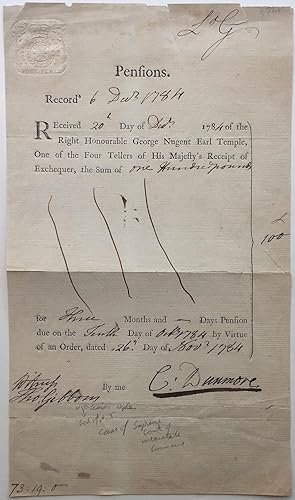 L & G
Pensions.
Record^d 6 Dec^r 1784
Received 20^th Day of Dec^r 1784 of the
Right Honourable George Nugent Earl Temple,
One of the Four Tellers of His Majesty's Receipt of
Exchequer, the Sum of one Hundred pounds
£
100
for Three Months and — Days Pension
due on the Tenth Day of Oct^r 1784 by Virtue
of an Order, dated 26^th Day of Nov^r 1784
Witness By me C: Dunmore
Tho Gibbons
Case of Supreme
Court
73-19-0